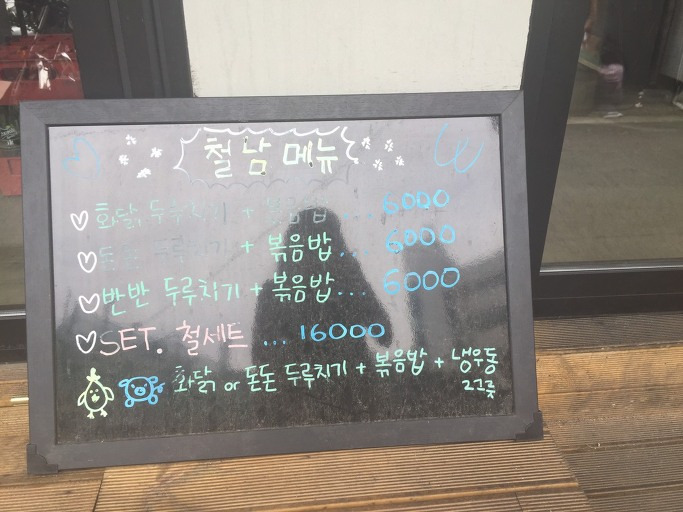 철남메뉴
♡ 화닭 두루치기 + 볶음밥 ... 6000
♡ 돈돈 두루치기 + 볶음밥 ... 6000
♡ 반반 두루치기 + 볶음밥... 6000
♡ SET. 철세트 ... 16000
화닭 or 돈돈 두루치기 + 볶음밥 + 냉우동
2그릇